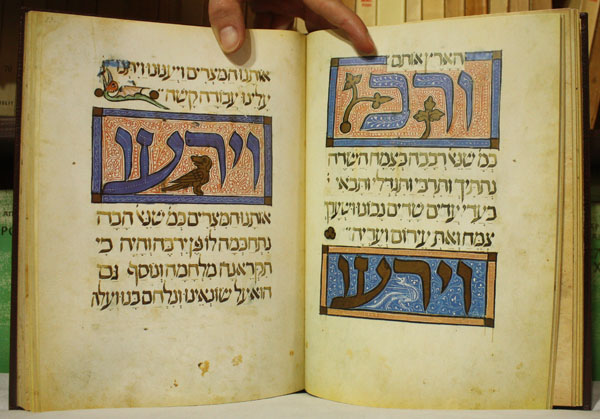 הארץ אותם
ורב
כמ שנא רבבה כצמח השדה
נתתיך ותרבי ותגדלי ותבאי
בעדי עדים שדים נכונו ושערך
צמח ואת עירום ועריה
וירעו
אותנו המצרים ויענונו ויתנו
עלינו עבודה קשה
וירעו
אותנו המצרים כמ שנא הבה
נתחכמה לו פן ירבה והיה כי
תקראנה מלחמה ונוסף גם
הוא על שונאינו ונלחם בנו ועלה